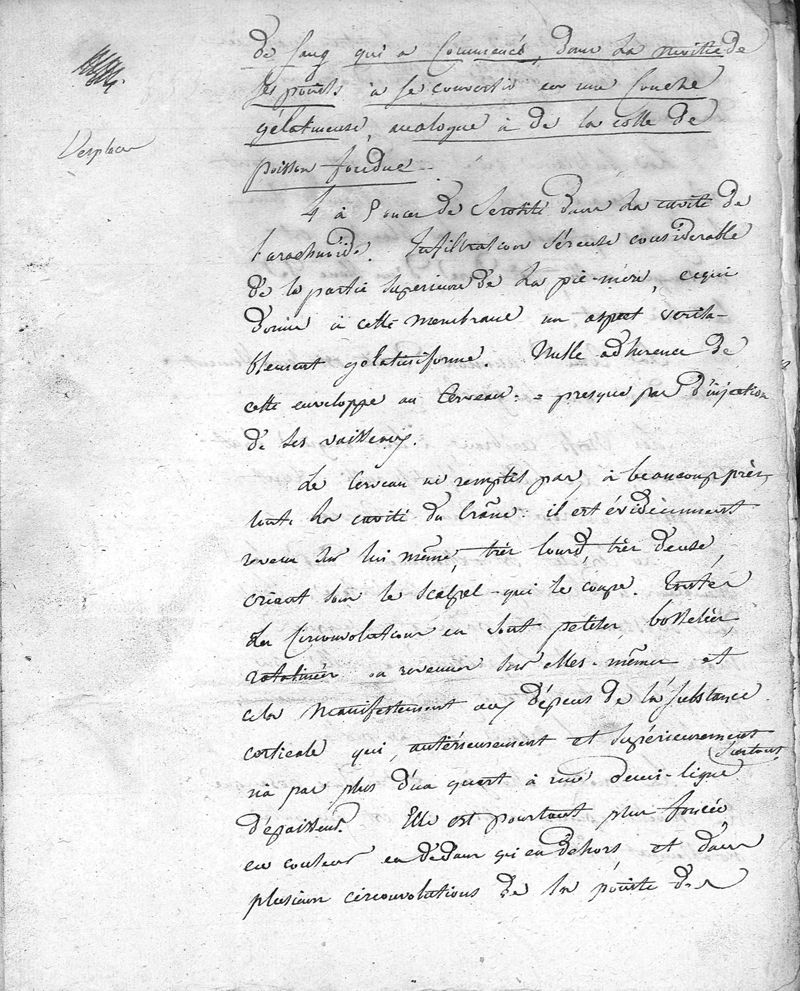 de sang qui a commencé, dans la moitié de
ses points à se convertir en une couche
gélatineuse, analogue à de la colle de
poisson fondue.
4 à 5 onces de serosité dans la cavité de
l'arachnoïde. Infiltration séreuse considerable
de la partie superieure de la pie-mère, ce qui
donne à cette membrane un aspect verita-
blement gelatiniforme. Nulle adherence de
cette enveloppe au Cerveau. = presque pas d'injection
de ses vaisseaux.
Le Cerveau ne remplit pas, à beaucoup près,
toute la cavité du Crâne. il est évidemment
revenu sur lui même, très lourd, très dense,
criant sous le scalpel qui le coupe. Toutes
les Circonvolutions en sont petites, bosselées,
ratatinées ou revenues sur elles-mêmes et
cela manifestement aux dépens de la substance
corticale qui, antérieurement et supérieurement
surtout,
n'a pas plus d'un quart à une demi-ligne
d'épaisseur. Elle est pourtant plus foncée
en couleur en dedans qu'en dehors, et dans
plusieurs circonvolutions de la pointe des